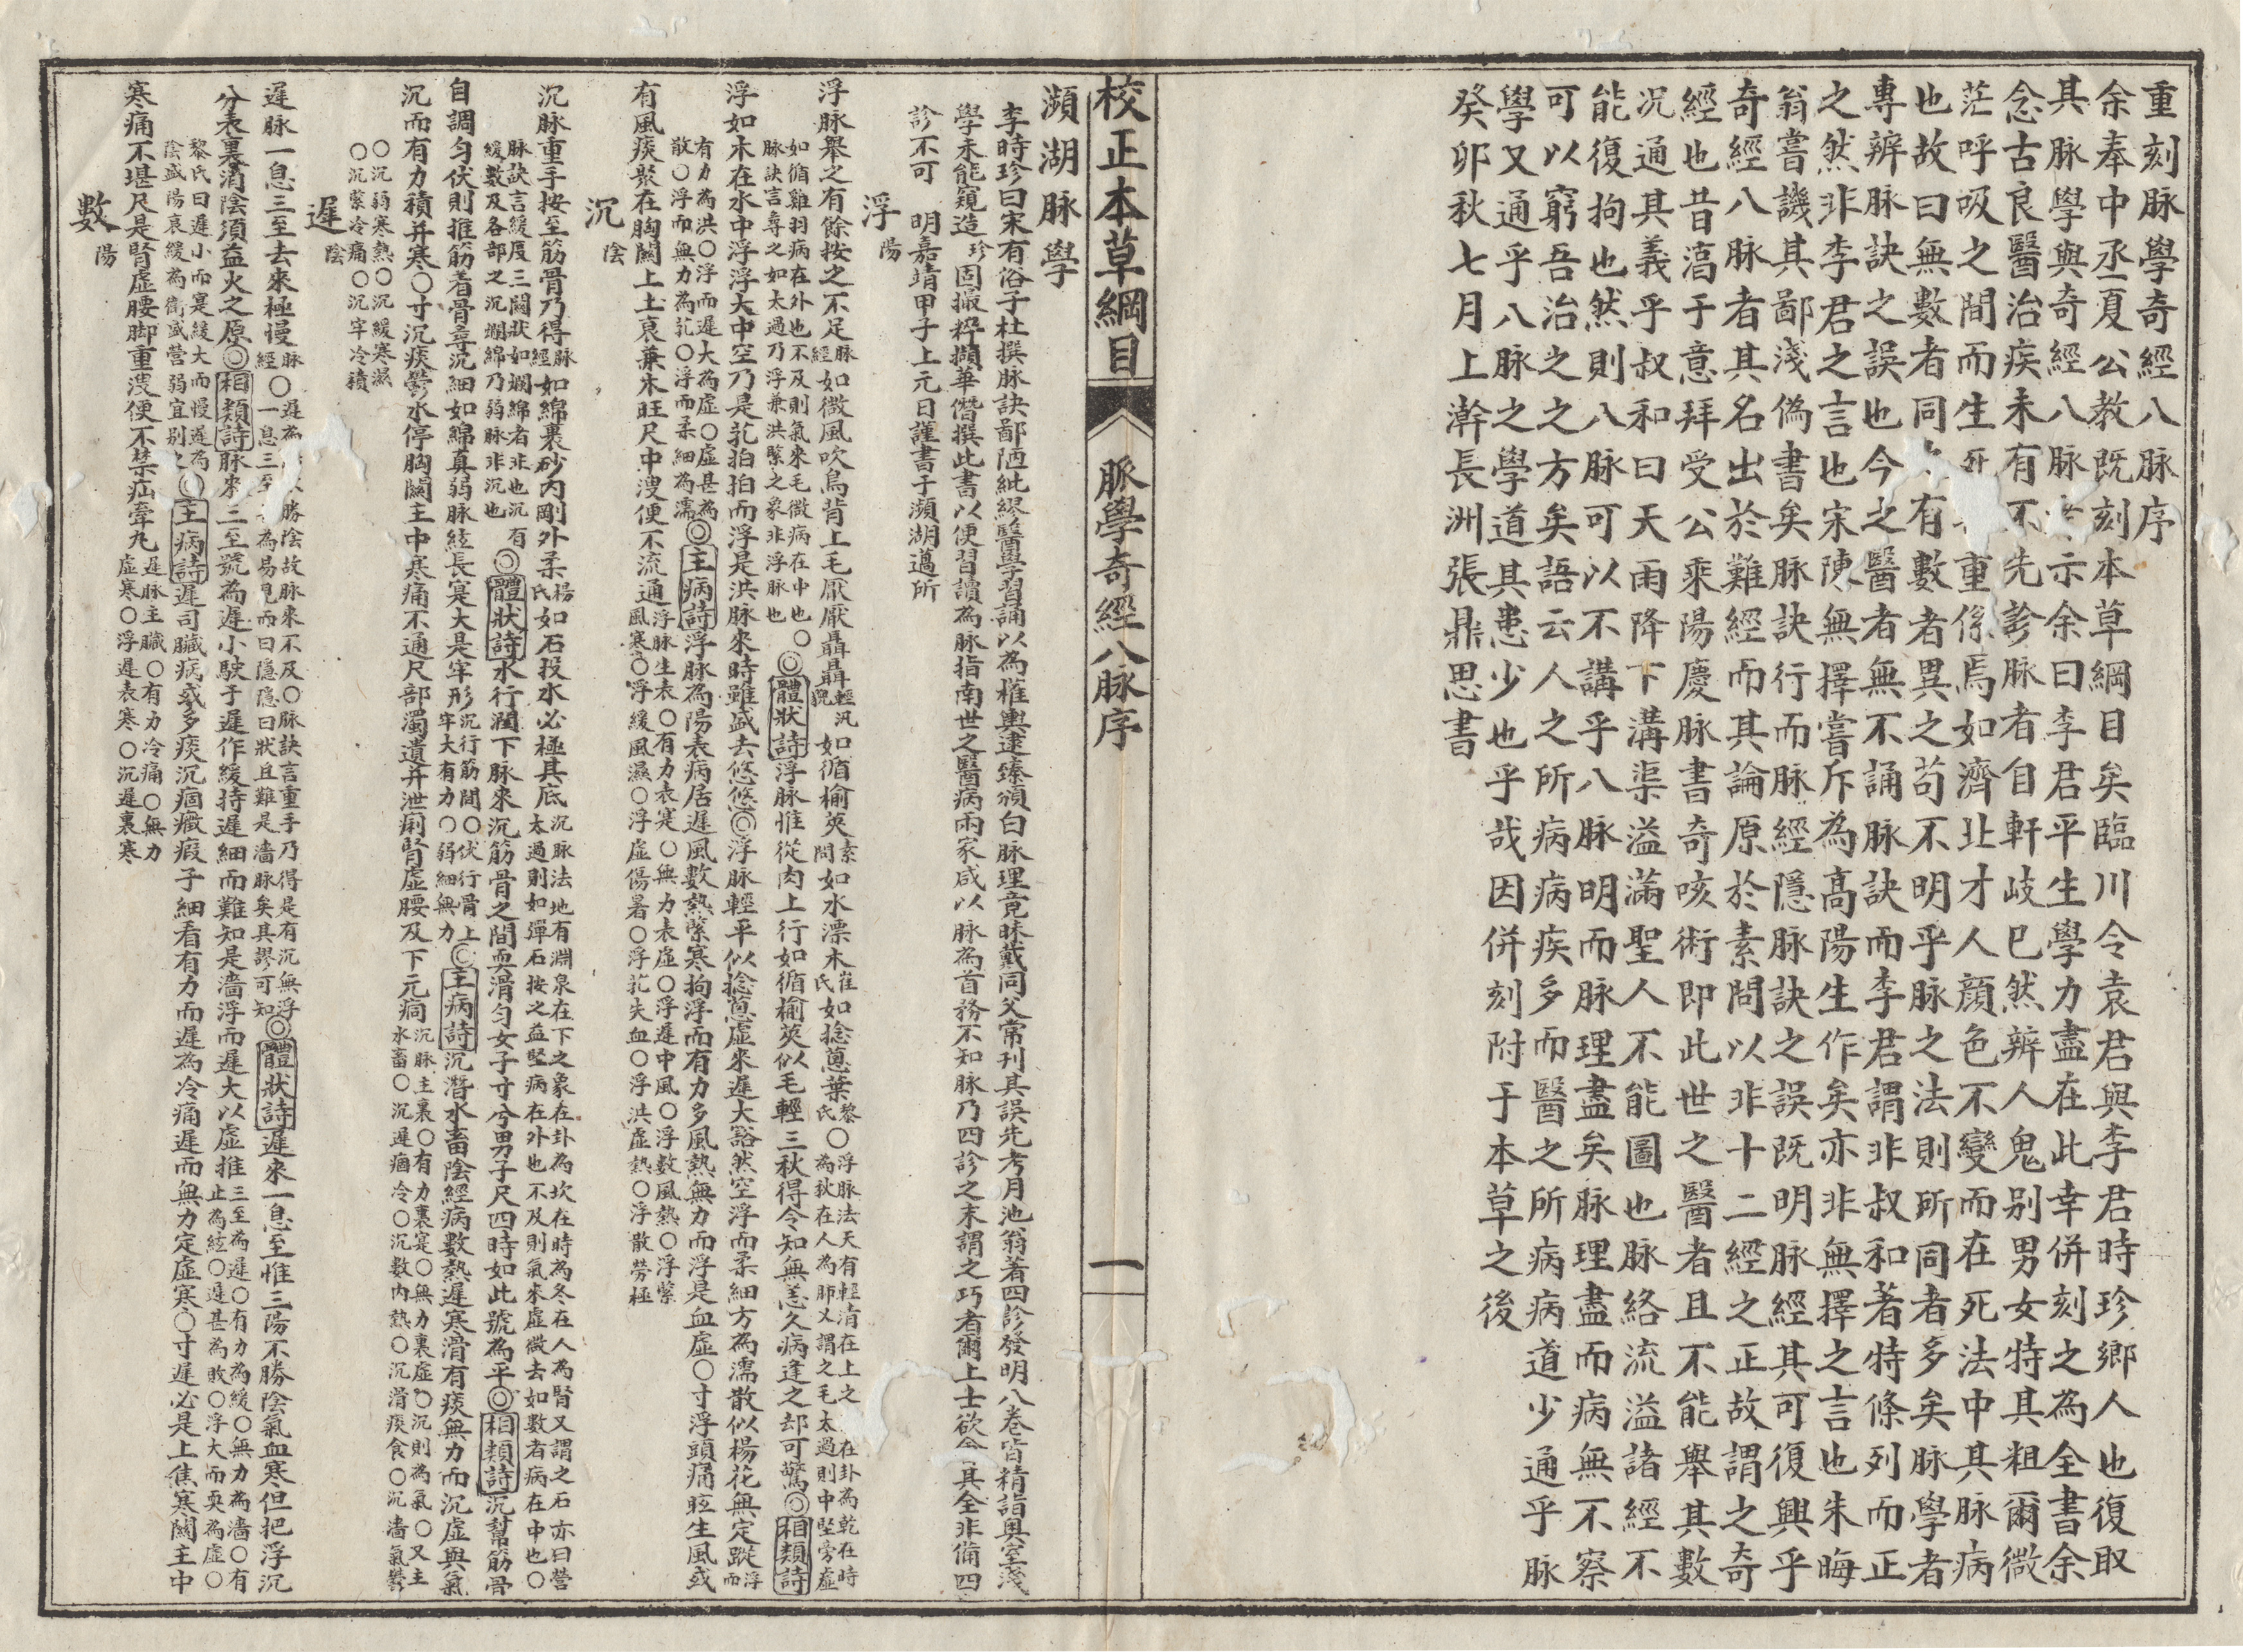 重刻脈學奇經八脈序
余奉中丞夏公教既刻本草綱目矣臨川令袁君與李君時珍鄉人也復取
其脈學與奇經八脈示余曰李君平生學力盡在此幸併刻之為全書余
念古良醫治疾未有不先診脉者自軒岐已然辨人鬼別男女特其粗爾微
茫呼吸之間而生死重係焉如濟北才人顏色不變而在死法中其脉病
也故曰無數者同有數者異之苟不明乎脉之法則所同者多矣脉學者
專辨脉訣之誤也今之醫者無不誦脉訣而李君謂非叔和著特條列而正
之然非李君之言也宋陳無擇嘗斥為高陽生作矣亦非無擇之言也朱晦
翁嘗譏其鄙淺偽書矣脉訣行而脉經隱脉訣之誤既明脉經其可復興乎
奇經八脉者其名出於難經而其論原於素問以非十二經之正故謂之奇
經也昔淳于意拜受公乘陽慶脉書奇咳術即此世之醫者且不能舉其數
况通其義乎叔和曰天雨降下溝渠溢滿聖人不能圖也脉絡流溢諸經不
能復拘也然則八脉可以不講乎八脉明而脉理盡矣脉理盡而病無不察
可以窮吾治之之方矣語云人之所病病疾多而醫之所病病道少通乎脉
學又通乎八脉之學道其患少也乎哉因併刻附于本草之後
癸卯秋七月上澣長洲張鼎思書
校正本草綱目
脈學奇經八脉序
一
瀕湖脈學
李時珍曰宋有俗子杜撰脉訣鄙陋紕繆醫學習誦以為權輿逮臻頒白脉理竟昧戴同父常刊其誤先考月池翁著四診發明八卷皆精詣奧室淺
學未能窺造珍因撮粹擷華僭撰此書以便習讀為脉指南世之醫病兩家咸以脉為首務不知脉乃四診之末謂之巧者爾上士欲會其全非備四
診不可　明嘉靖甲子上元日謹書于瀕湖薖所
浮陽
浮脉舉之有餘按之不足脉經如微風吹鳥背上毛厭厭聶聶輕汎貌如循榆莢素問如水漂木崔氏如捻蔥葉黎氏○浮脉法天有輕清在上之在卦為乾在時為秋在人為肺又謂之毛太過則中堅旁虛
如循雞羽病在外也不及則氣來毛微病在中也○脉訣言尋之如太過乃浮兼洪緊之象非浮脉也◎體狀詩浮脉惟從肉上行如循榆莢似毛輕三秋得令知無恙久病逢之却可驚◎相類詩
浮如木在水中浮浮大中空乃是芤拍拍而浮是洪脉來時雖盛去悠悠◎浮脉輕平似捻蔥虛來遲大豁然空浮而柔細方為濡散似楊花無定蹤浮而
有力為洪○浮而遲大為虛○虛甚為散○浮而無力為芤○浮而柔細為濡◎主病詩浮脉為陽表病居遲風數熱緊寒拘浮而有力多風熱無力而浮是血虛○寸浮頭痛眩生風或
有風痰聚在胸關上土衰兼木旺尺中溲便不流通浮脉主表○有力表寔○無力表虛○浮遲中風○浮數風熱○浮緊風寒○浮緩風濕○浮虛傷暑○浮芤失血○浮洪虛熱○浮散勞極
沉陰
沉脉重手按至筋骨乃得脉經如綿裹砂內剛外柔楊氏如石投水必極其底沉脉法地有淵泉在下之象在卦為坎在時為冬在人為腎又謂之石亦曰營太過則如彈石按之益堅病在外也不及則氣來虛微去如數者病在中也○
脉訣言緩度三關狀如爛綿者非也沉有緩數及各部之沉爛綿乃弱脉非沉也◎體狀詩水行潤下脉來沉筋骨之間耎滑勻女子寸兮男子尺四時如此號為平◎相類詩沉幫筋骨
自調勻伏則推筋着骨尋沉細如綿真弱脉絃長寔大是牢形沉行筋間○伏行骨上牢大有力○弱細無力◎主病詩沉潛水畜陰經病數熱遲寒滑有痰無力而沉虛與氣
沉而有力積并寒○寸沉痰鬱水停胸關主中寒痛不通尺部濁遺并泄痢腎虛腰及下元痌沉脉主裏○有力裏寔○無力裏虛○沉則為氣○又主水畜○沉遲痼冷○沉數內熱○沉滑痰食○沉濇氣鬱
○沉弱寒熱○沉緩寒濕○沉緊冷痛○沉牢冷積
遲陰
遲脉一息三至去來極慢脉經○遲為勝陰故脉來不及○脉訣言重手乃得是有沉無浮一息三至為易見而曰隱隱曰狀且難是濇脉矣其謬可知◎體狀詩遲來一息至惟三陽不勝陰氣血寒但把浮沉
分表裏消陰須益火之原◎相類詩脉來三至號為遲小駃于遲作緩持遲細而難知是濇浮而遲大以虛推三至為遲○有力為緩○無力為濇○有止為結○遲甚為敗○浮大而耎為虛○
黎氏曰遲小而寔緩大而慢遲為陰盛陽衰緩為衛盛營弱宜別之◎主病詩遲司臟病或多痰沉痼癥瘕子細看有力而遲為冷痛遲而無力定虛寒○寸遲必是上焦寒關主中
寒痛不堪尺是腎虛腰脚重溲便不禁疝牽丸遲脉主臟○有力冷痛○無力虛寒○浮遲表寒○沉遲裏寒
數陽